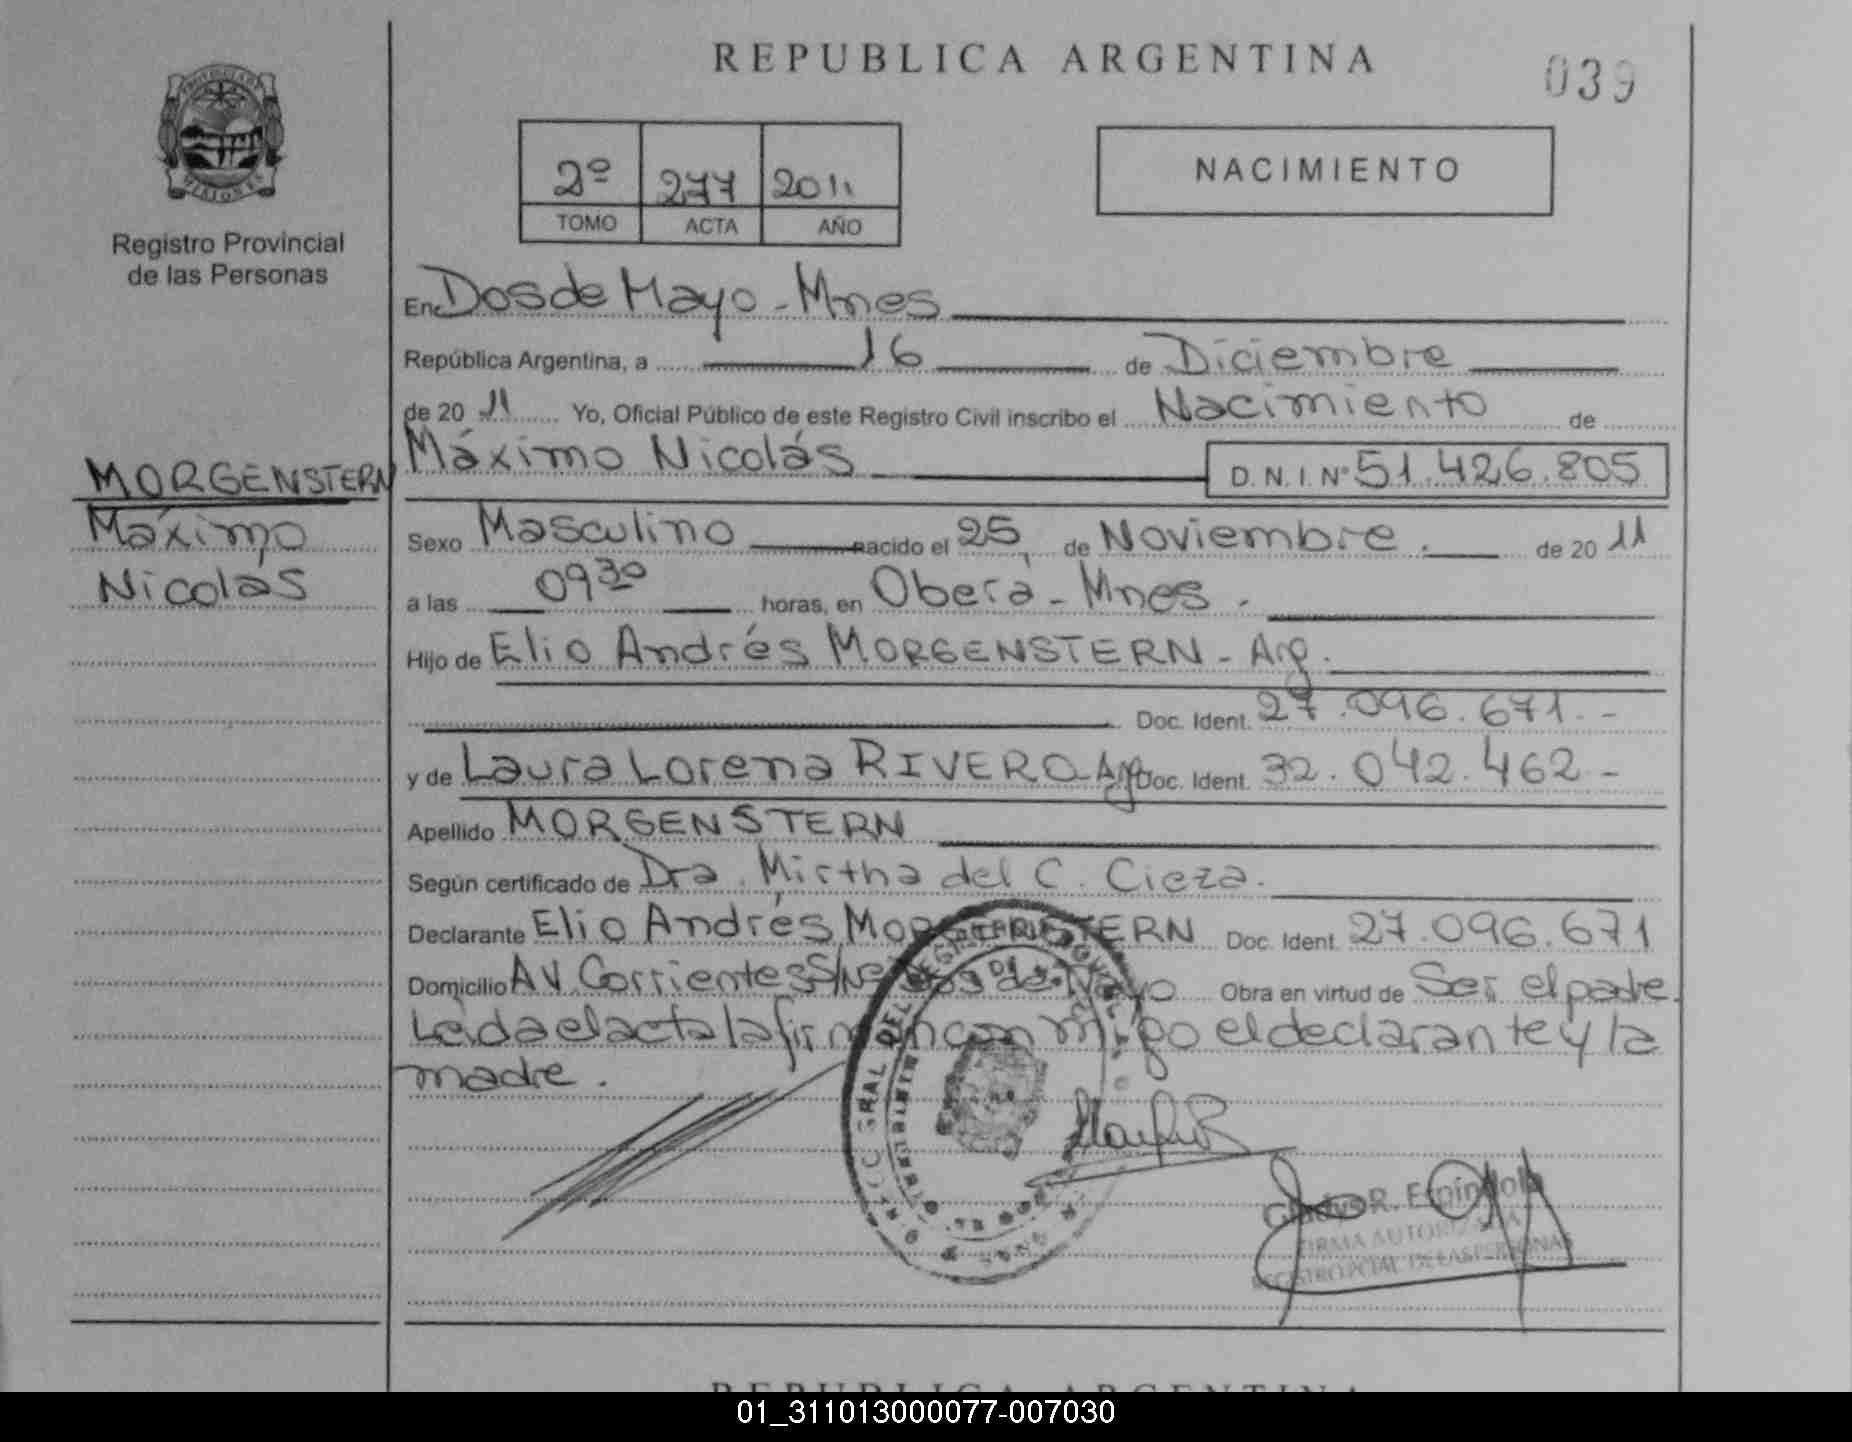 REPUBLICA ARGENTINA
039
PROVINCIA DE MISIONES
Registro Provincial
de las Personas
2º 277 2011
TOMO ACTA AÑO
NACIMIENTO
En Dos de Mayo - Mnes
República Argentina, a 16 de Diciembre
de 20 11 Yo, Oficial Público de este Registro Civil inscribo el Nacimiento de
Máximo Nicolás D.N.I. Nº 51.426.805
MORGENSTERN
Máximo
Nicolás
Sexo Masculino nacido el 25 de Noviembre. de 20 11
a las 09 30 horas, en Oberá - Mnes.
Hijo de Elio Andrés MORGENSTERN - Arg.
Doc. Ident. 27.096.671.-
y de Laura Lorena RIVERO Arg Doc. Ident. 32.042.462 -
Apellido MORGENSTERN
Según certificado de Dra. Mirtha del C. Cieza.
Declarante Elio Andrés MORGENSTERN Doc. Ident. 27.096.671
Domicilio AV. Corrientes S/Nº Dos de Mayo Obra en virtud de Ser el padre.
Leída el acta la firman conmigo el declarante y la
madre.
Gladys R. Espíndola
FIRMA AUTORIZADA
REGISTRO PCIAL. DE LAS PERSONAS
REPUBLICA ARGENTINA
01_311013000077-007030